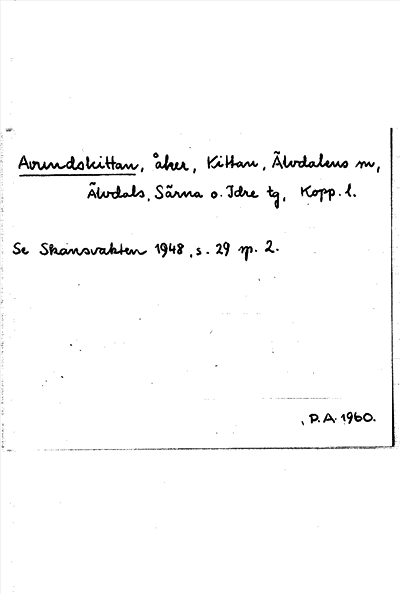 Avundskittan, åker, Kittan, Älvdalens m,
Älvdals, Särna o. Idre tg, Kopp. l.
Se Skansvakten 1948, s. 29 sp. 2.
P.A. 1960.